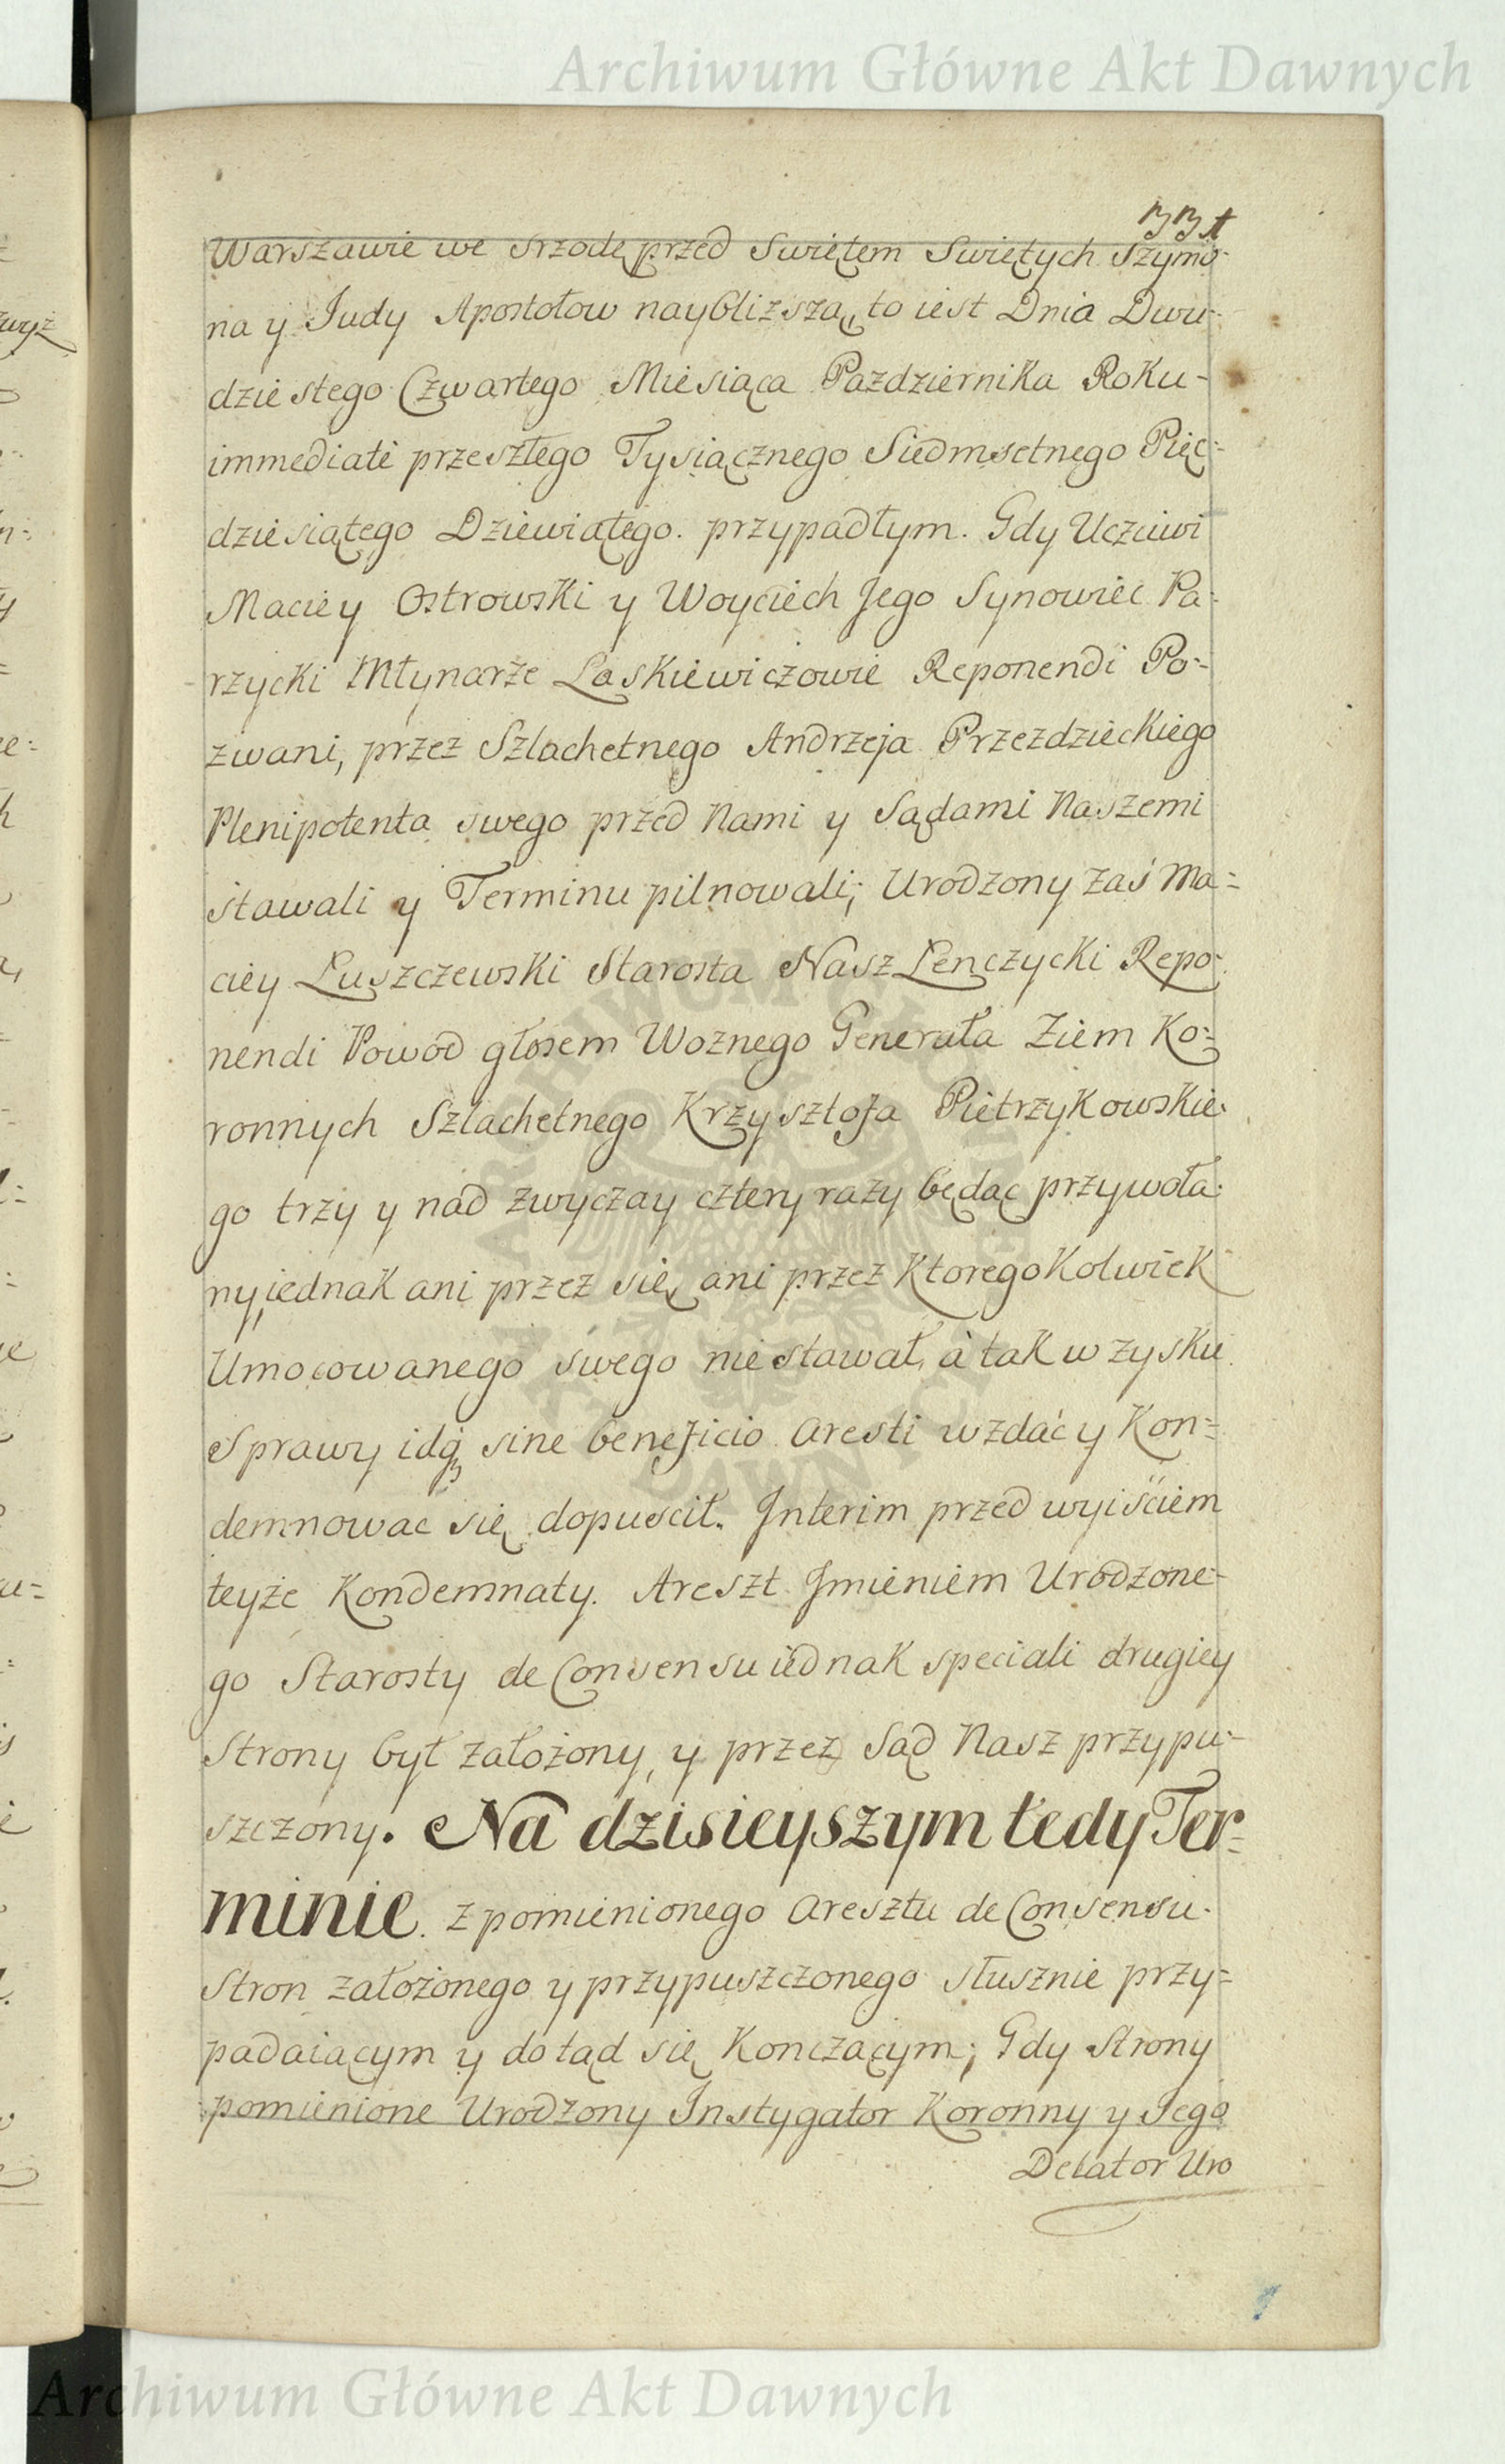 Archiwum Główne Akt Dawnych
331
Warszawie we Srzodę przed Swiętem Swiętych Szymo-
na y Judy Apostołow naybliższą, to iest Dnia Dwu-
dziestego Czwartego Miesiąca Pazdziernika Roku-
immediate przeszłego Tysiącznego Siedmsetnego Pięć-
dziesiątego Dziewiątego. przypadłym. Gdy Uczciwi
Maciey Ostrowski y Woyciech Jego Synowiec Pa-
rzycki Młynarze Laskiewiczowie Reponendi Po:-
zwani, przez Szlachetnego Andrzeja Przezdzieckiego
Plenipotenta swego przed Nami y Sądami Naszemi
stawali y Terminu pilnowali; Urodzony zaś Ma=
ciey Łuszczewski Starosta Nasz Łenczycki Repo-
nendi Powod głosem Woznego Generała Ziem Ko:-
ronnych Szlachetnego Krzysztofa Pietrzykowskie-
go trzy y nad zwyczay cztery razy będąc przywoła-
ny, iednak ani przez się, ani przez Ktoregokolwiek
Umocowanego swego nie stawał, à tak w zysku
Sprawy idą sine beneficio aresti wzdać y Kon=
demnowac się dopuscił. Interim przed wyiściem
teyże Kondemnaty. Areszt Imieniem Urodzone-
go Starosty de Consensu iednak speciali drugiey
Strony był założony, y przez Sąd Nasz przypu-
szczony. Na dzisieyszym tedy Ter=
minie z pomienionego Aresztu de Consensu
Stron założonego y przypuszczonego słusznie przy=
padaiącym y dotąd się Konczącym; Gdy Strony
pomienione Urodzony Instygator Koronny y Jego
Delator Uro
Archiwum Główne Akt Dawnych